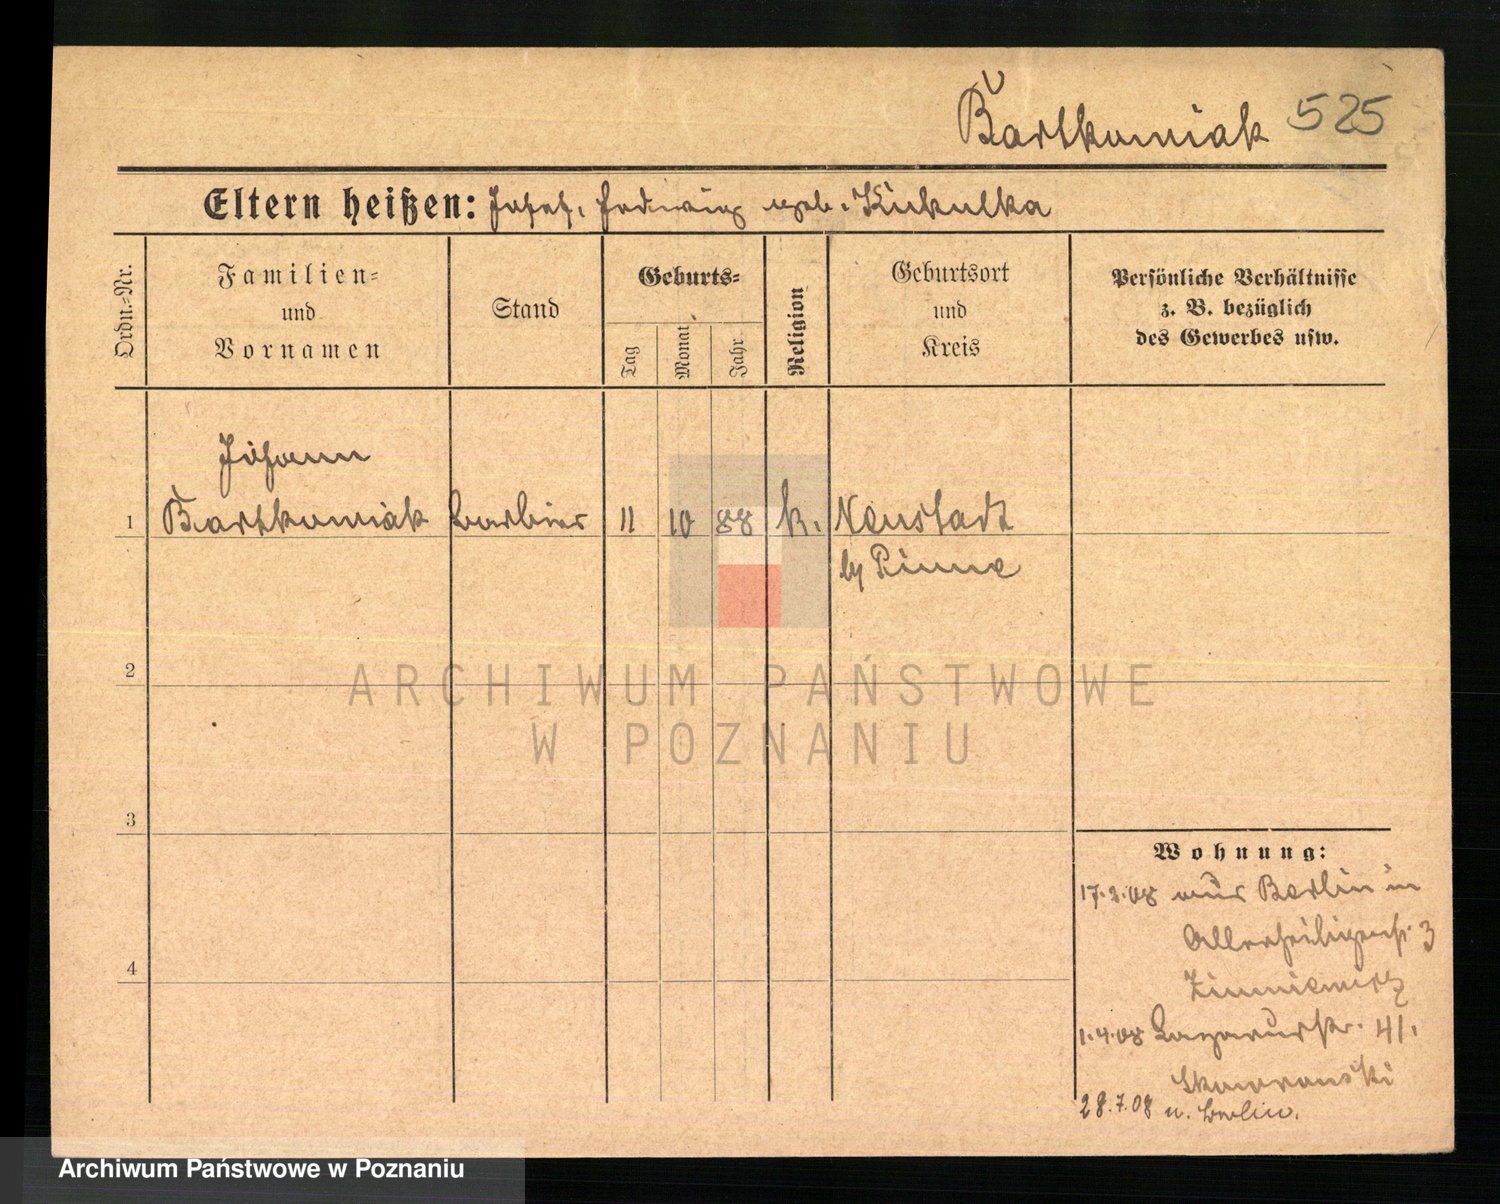 Bartkowiak 525
Eltern heißen: Josef, Hedwig geb. Kukulka
Ordn.-Nr.
Familien-
und
Vornamen
Stand
Geburts-
Tag
Monat
Jahr
Religion
Geburtsort
und
Kreis
Persönliche Verhältnisse
z. B. bezüglich
des Gewerbes usw.
Johann
1 Bartkowiak Barbier 11 10 88 k. Neustadt
by Pinne
2
ARCHIWUM PAŃSTWOWE
W POZNANIU
3
4
Wohnung:
17.2.08 aus Berlin in
Allerheiligenstr. 3
Zimniewicz
1.4.08 Lazarusstr. 41.
Skowronski
28.7.08 n. Berlin.
Archiwum Państwowe w Poznaniu